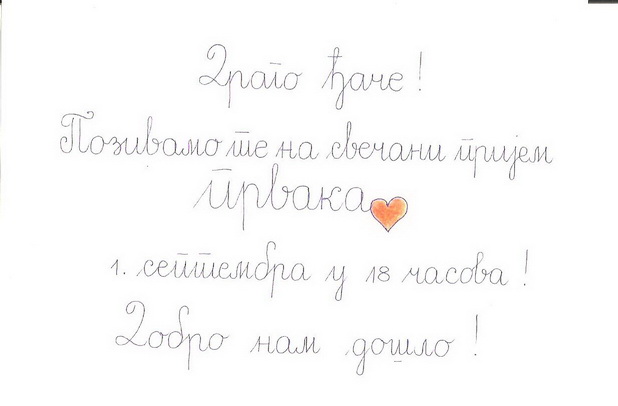 Драго ђаче!
Позивамо те на свечани пријем
првака
1. септембра у 18 часова!
Добро нам дошло!